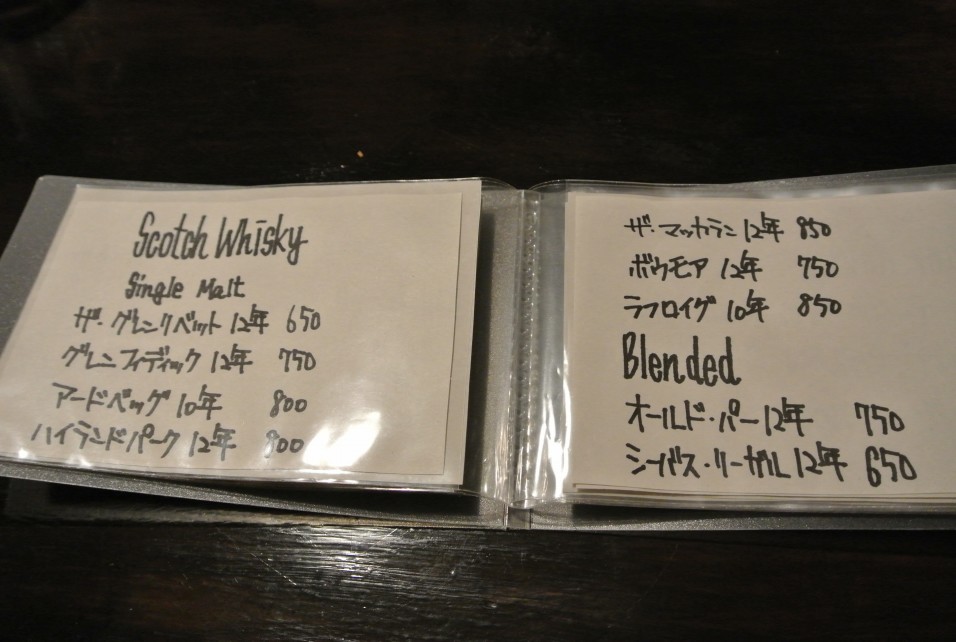 Scotch Whisky
Single Malt
ザ・グレンリベット 12年 650
グレンフィディック 12年 750
アードベッグ 10年 800
ハイランドパーク 12年 900
ザ・マッカラン 12年 850
ボウモア 12年 750
ラフロイグ 10年 850
Blended
オールド・パー 12年 750
シーバス・リーガル 12年 650